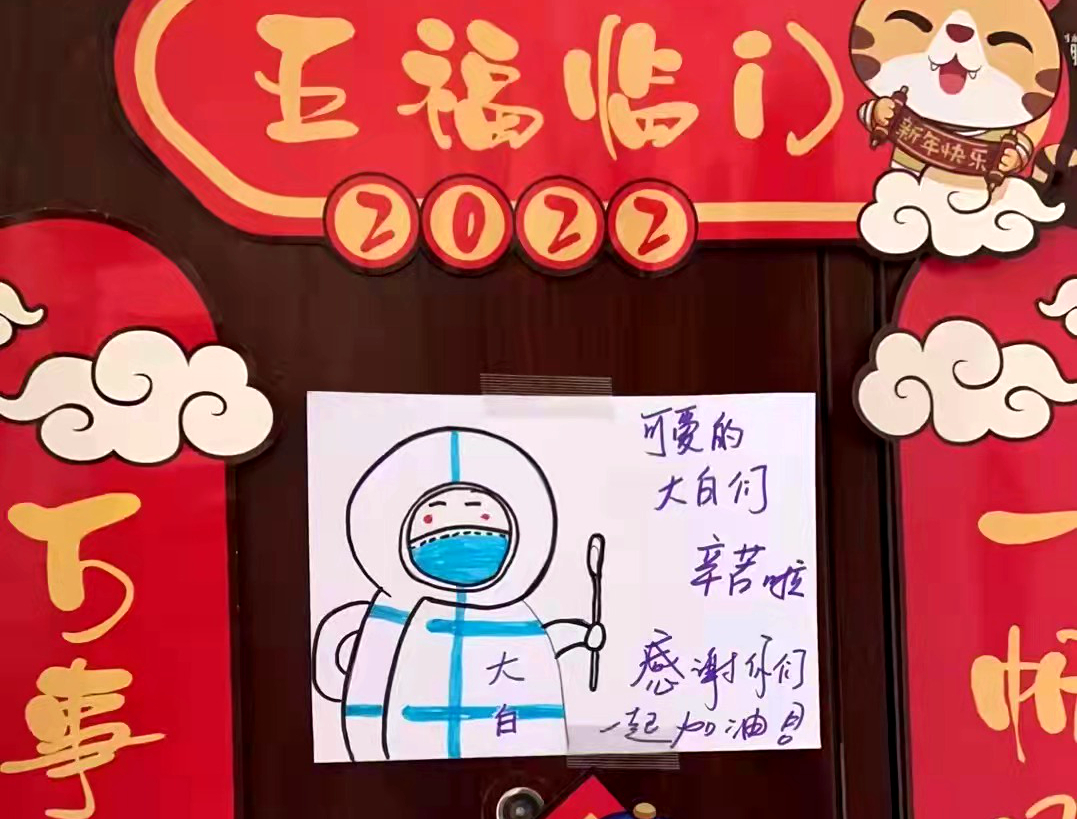 五福临门
新年快乐
2022
万事
一帆
可爱的
大白们
辛苦啦
感谢你们
一起加油!!
大白